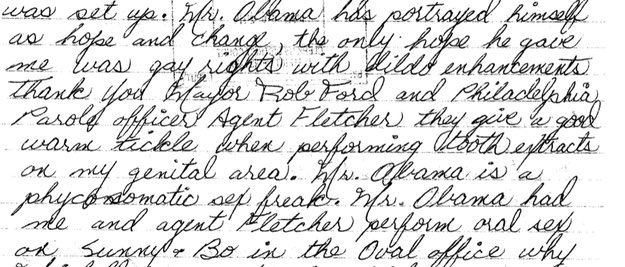 was set up. Mr. Obama has portrayed himself
as hope and change the only hope he gave
me was gay rights with dildo enhancements
thank you Mayor Rob Ford and Philadelphia
Parole officer Agent Fletcher they give a good
warm tickle when performing tooth extracts
on my genital area. Mr. Obama is a
phycosomatic sex freak. Mr. Obama had
me and agent Fletcher perform oral sex
on Sunny & Bo in the Oval office why